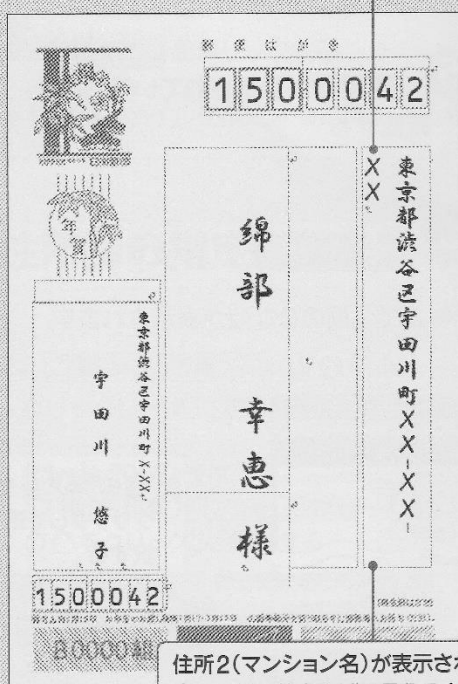 郵便はがき
1500042
東京都渋谷区宇田川町XX-XX-
XX
綿部 幸恵 様
年賀
東京都渋谷区宇田川町X-XX
宇田川 悠子
1500042
B0000組
住所2(マンション名)が表示され